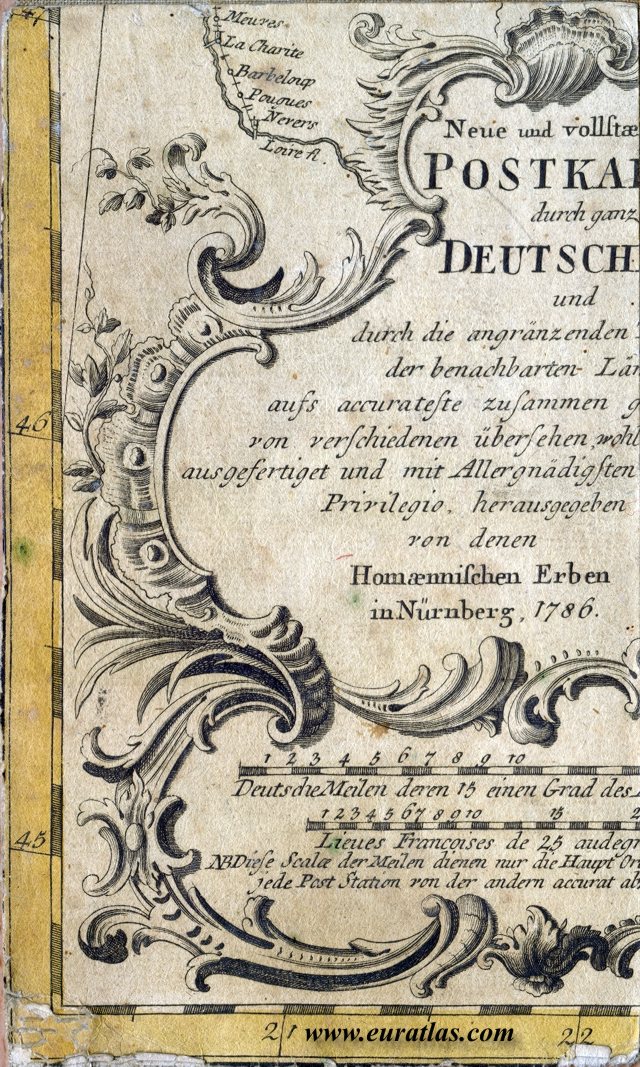 47
Meures
La Charite
Barbeloup
Pougues
Nevers
Loire fl.
Neue und vollſtæ
POSTKAR
durch ganz
DEUTSCH
und
durch die angränzenden
der benachbarten Län
aufs accurateſte zuſammen g
von verſchiedenen überſehen, wohl
ausgefertiget und mit Allergnädigſten
Privilegio, herausgegeben
von denen
Homænniſchen Erben
in Nürnberg, 1786.
46
1 2 3 4 5 6 7 8 9 10
Deutsche Meilen deren 15 einen Grad des
1 2 3 4 5 6 7 8 9 10 15 2
Lieues Françoises de 25 au degr
NB Dieſe Scalæ der Meilen dienen nur die Haupt Or
jede Post Station von der andern accurat ab
45
21
www.euratlas.com
22